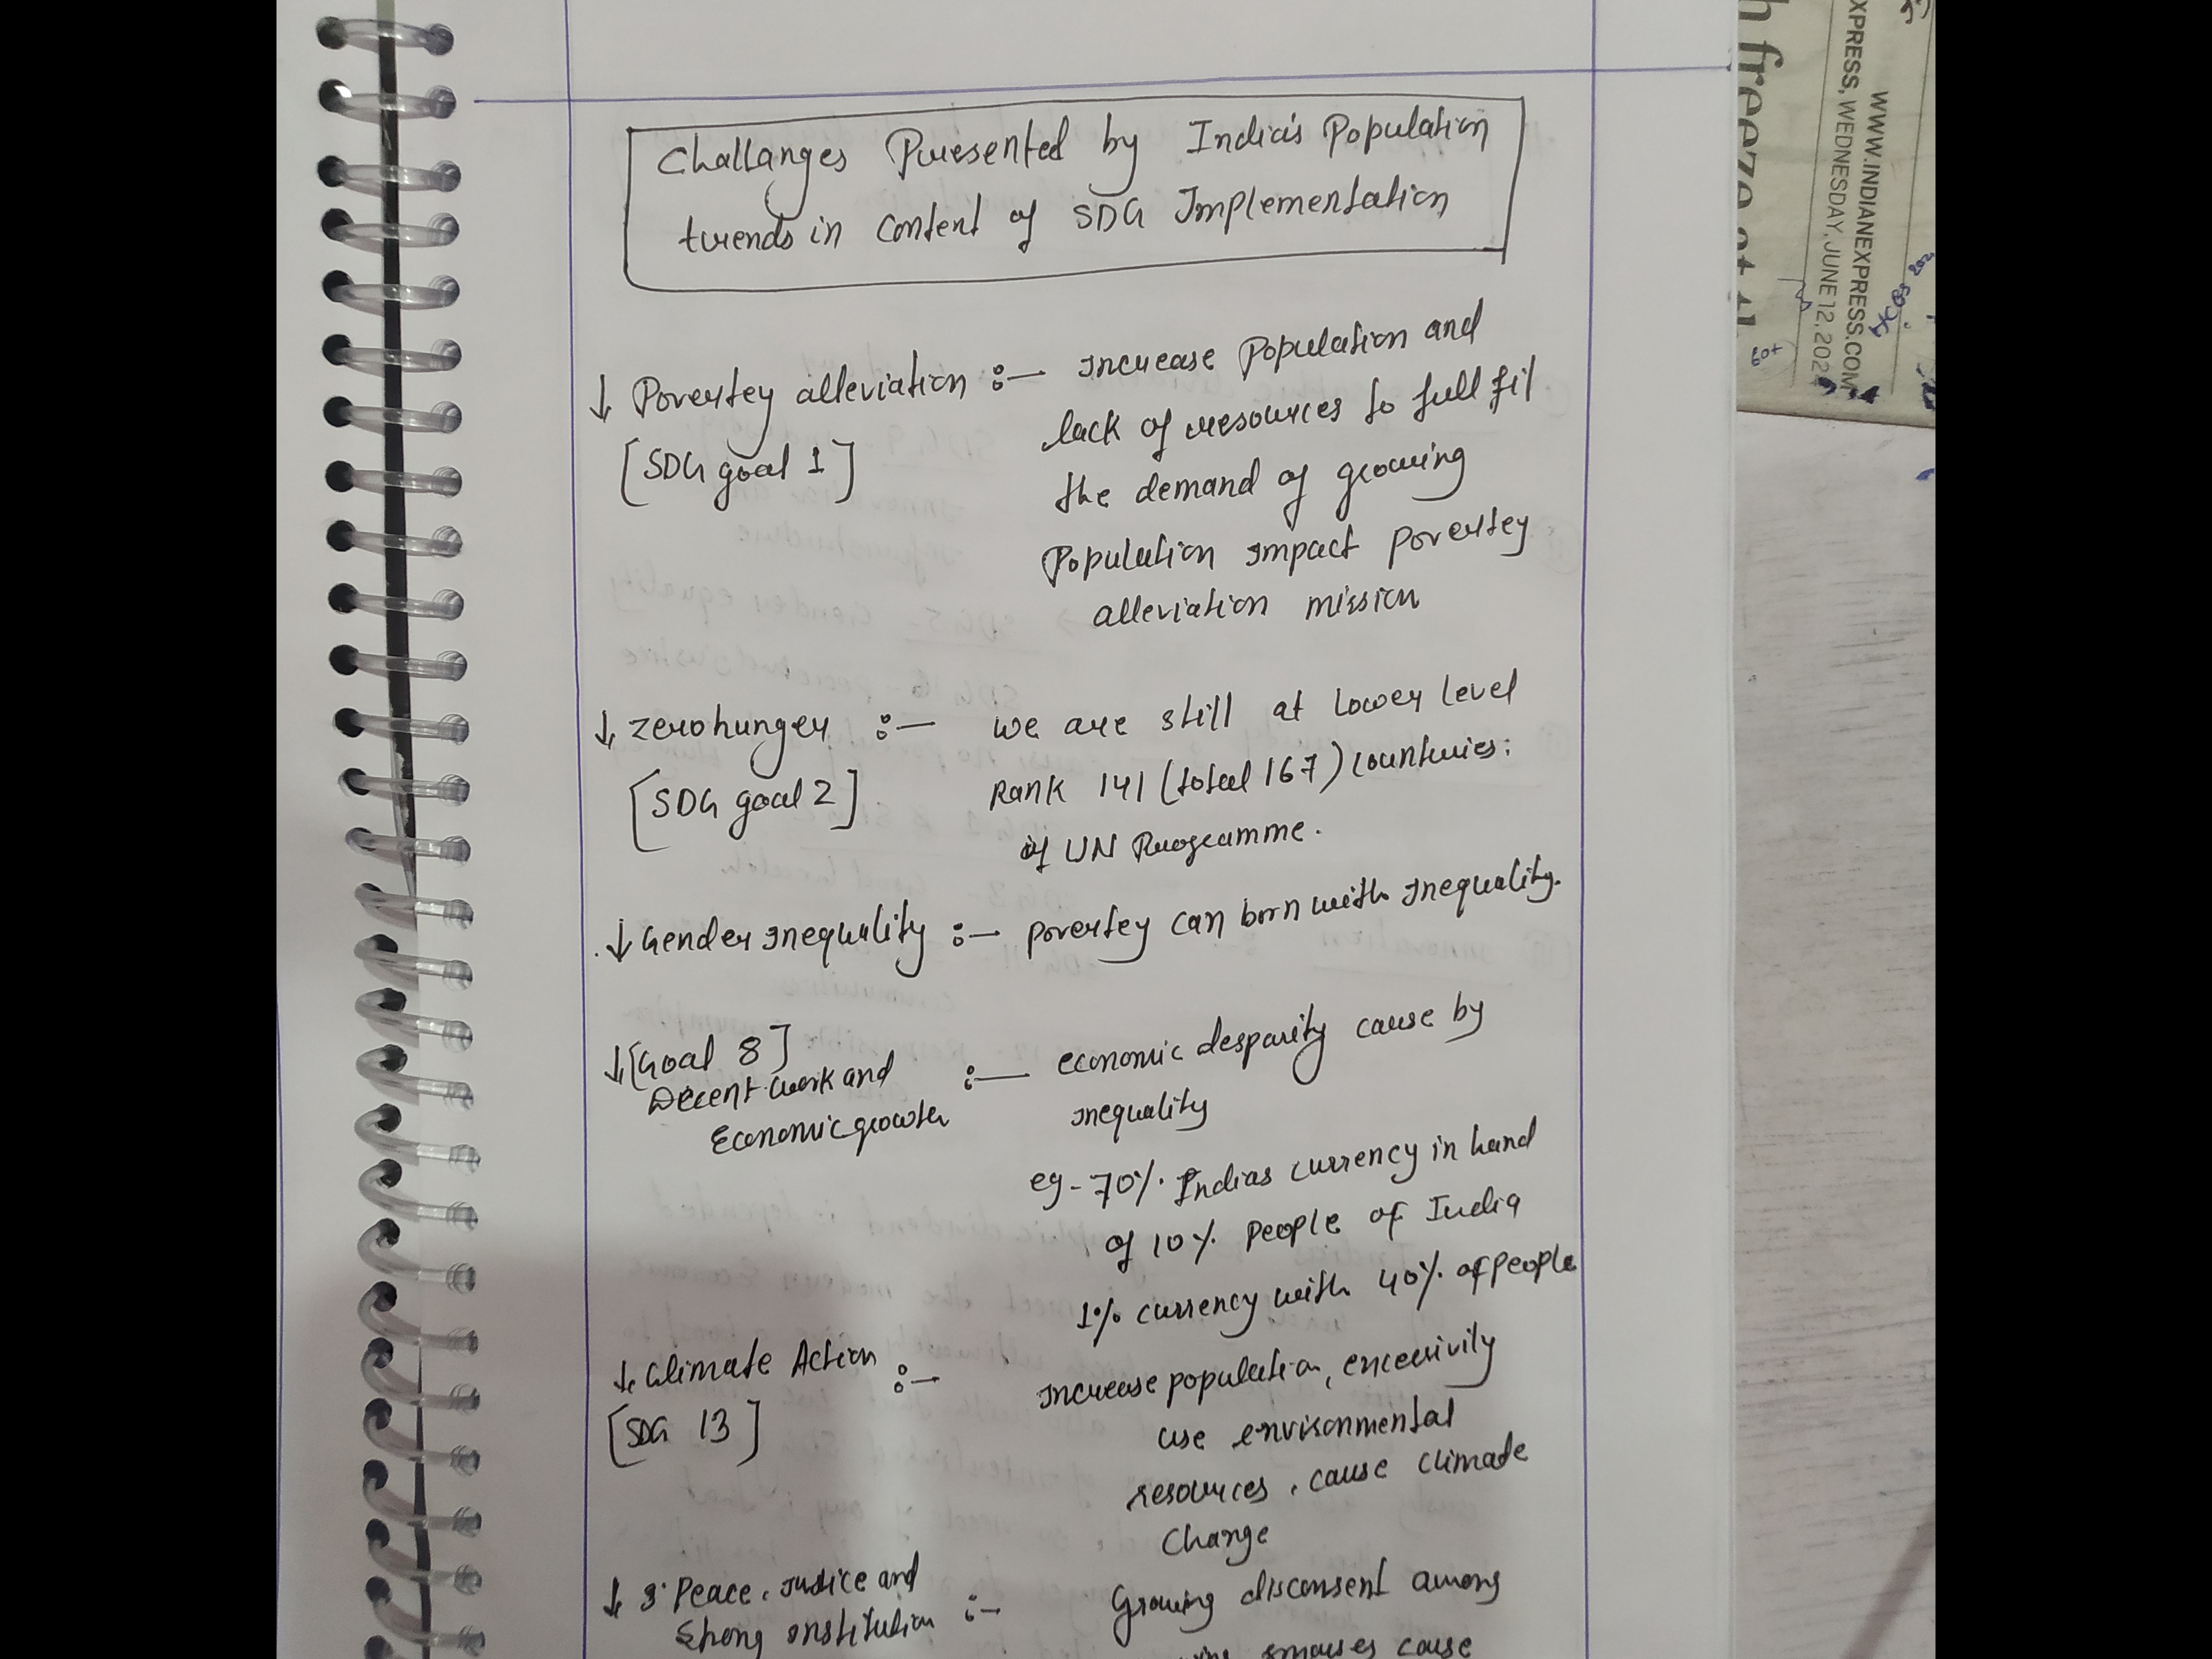 Challanges Presented by India's Population
trends in Content of SDG Implementation
↓ Povertey alleviation :- Increase Population and
[SDG goal 1] lack of resources to full fil
the demand of growing
Population impact povertey
alleviation mission
↓ zero hunger :- we are still at lower level
[SDG goal 2] Rank 141 (total 167) countries:
of UN Programme.
↓ Gender inequality :- povertey can born with inequality.
↓ [Goal 8] :- economic desparity cause by
Decent work and inequality
Economic growth
eg- 70% Indias currency in hand
of 10% People of India
1% currency with 40% of people
↓ Climate Action :- Increase population, excessivity
[SDG 13] use environmental
resources, cause climate
Change
↓ Peace, justice and :- Growing disconsent among
Strong institution cause
h freeze at
XPRESS, WEDNESDAY, JUNE 12, 202
WWW.INDIANEXPRESS.COM